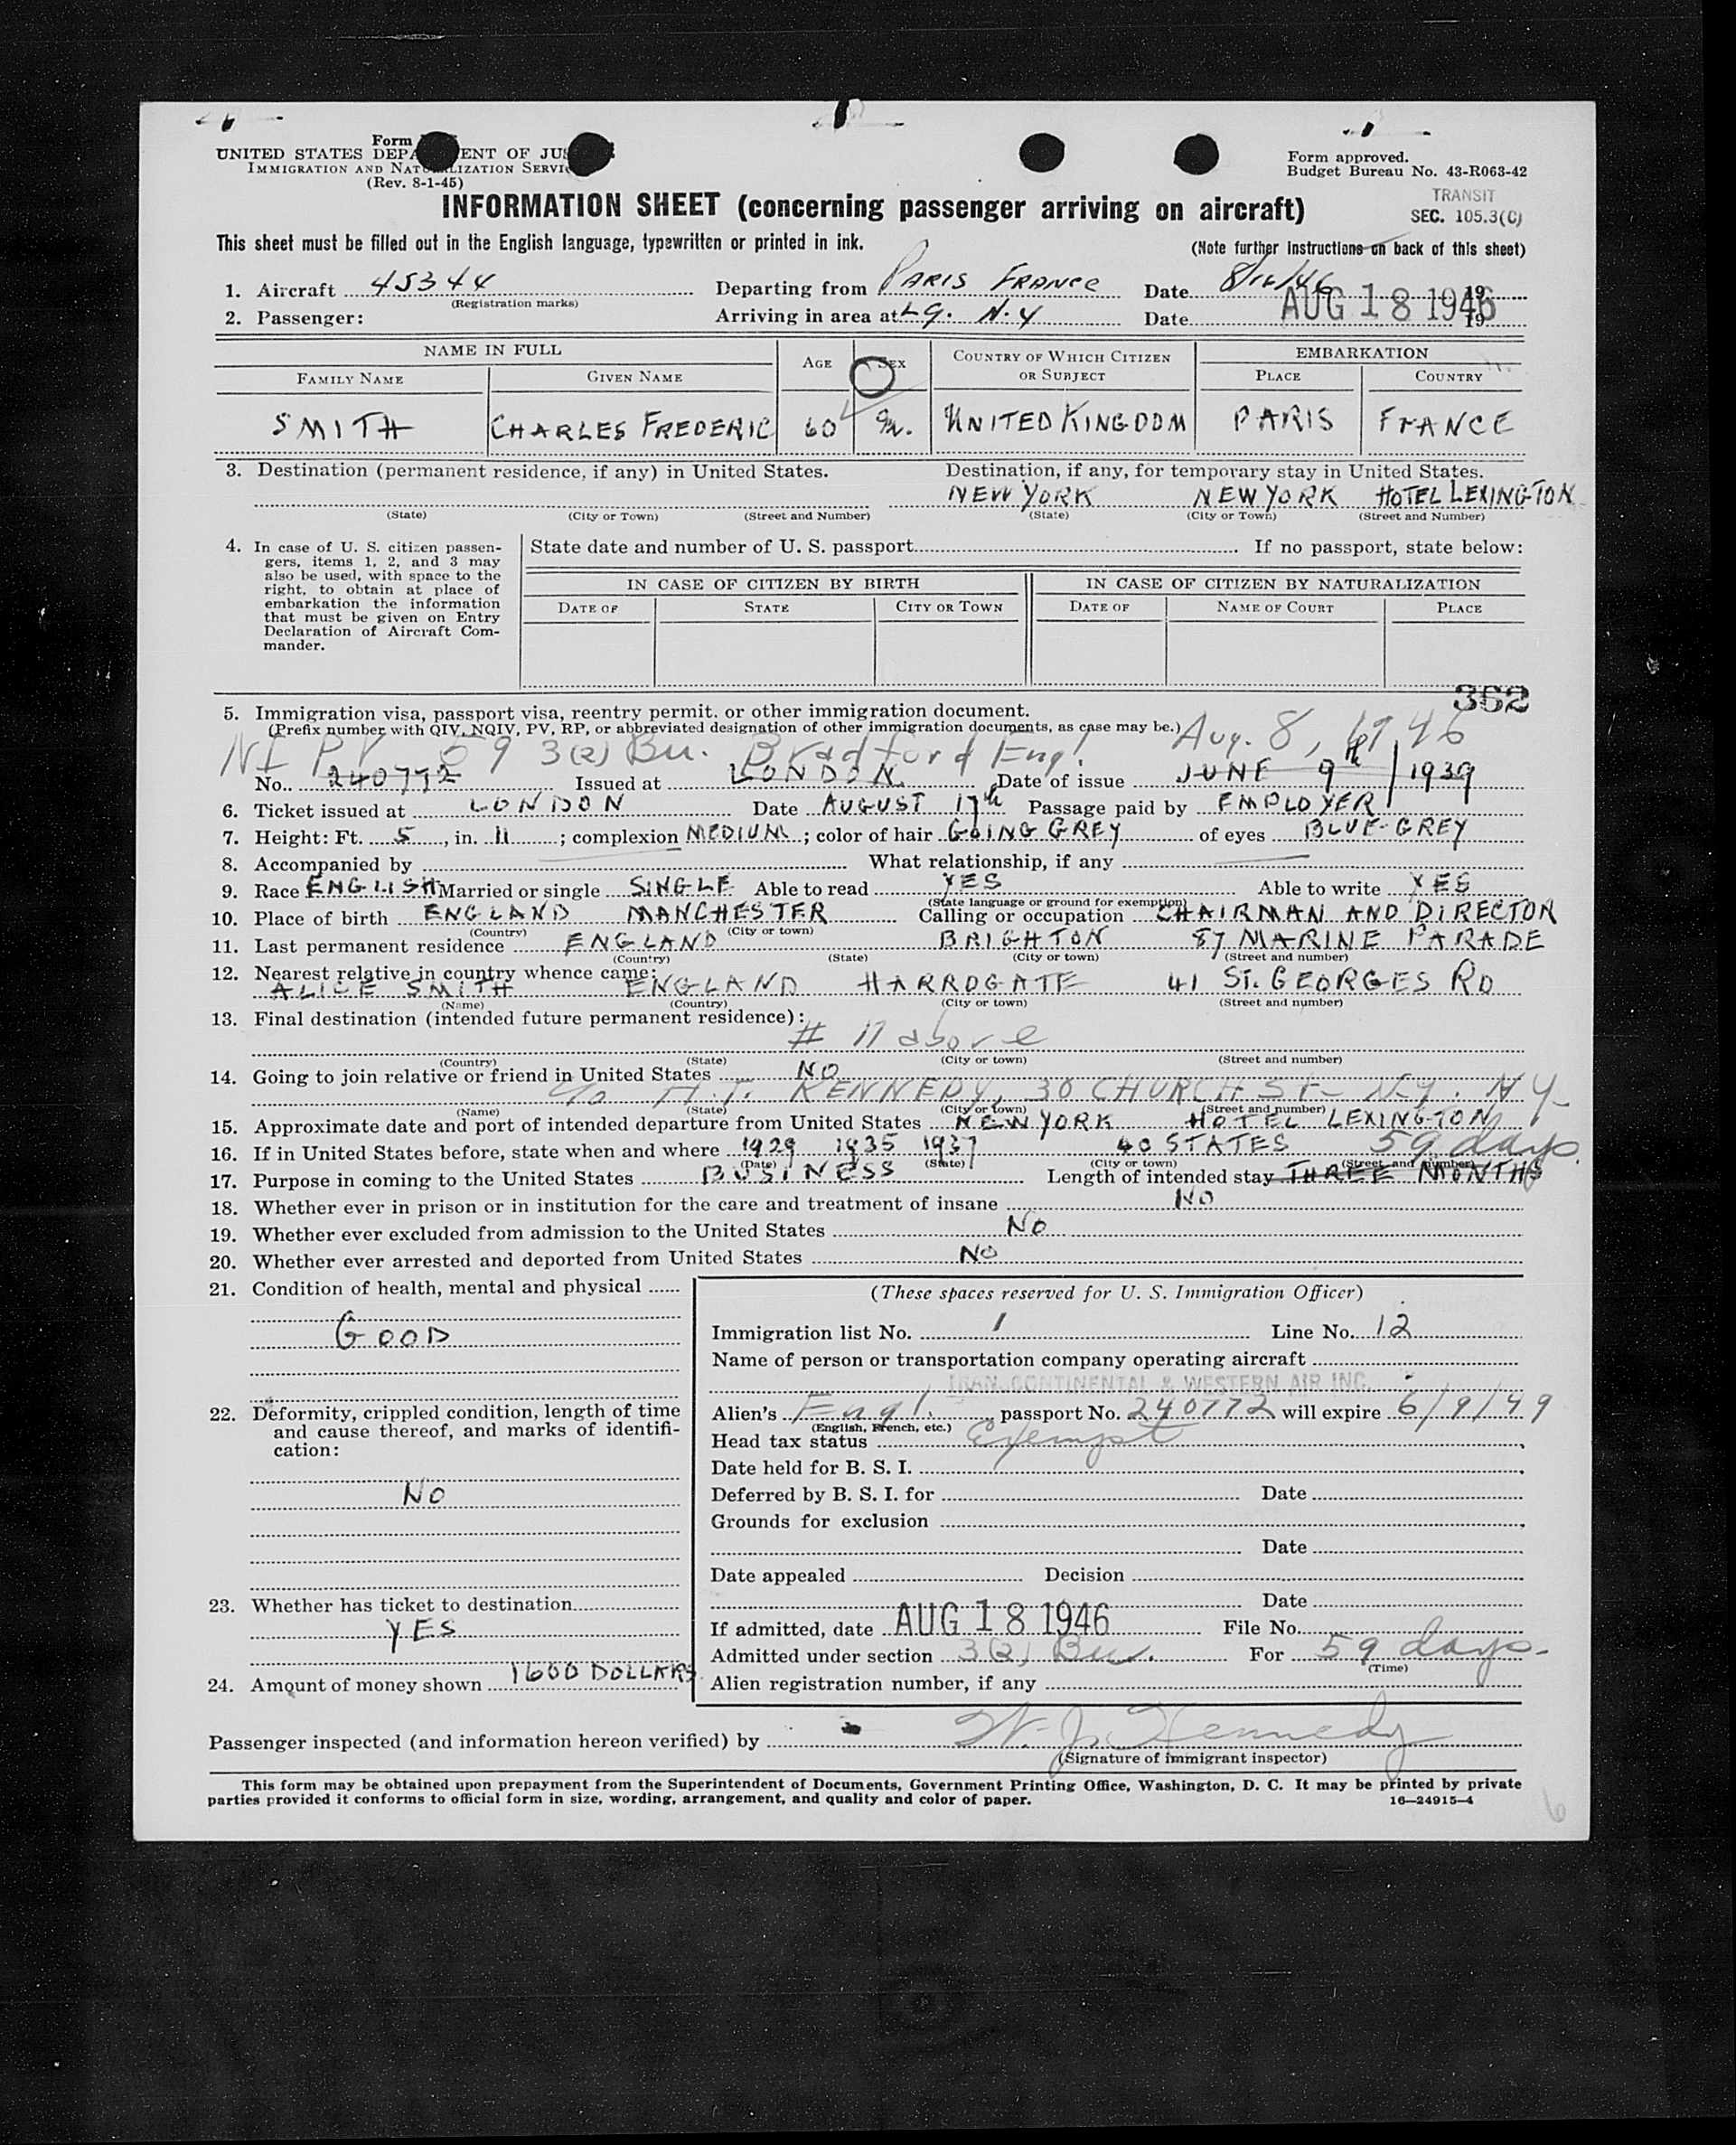 Form
UNITED STATES DEPA ENT OF JUS
IMMIGRATION AND NATURALIZATION SERVI
(Rev. 8-1-45)
Form approved.
Budget Bureau No. 43-R063-42
TRANSIT
SEC. 105.3(C)
INFORMATION SHEET (concerning passenger arriving on aircraft)
This sheet must be filled out in the English language, typewritten or printed in ink.
(Note further instructions on back of this sheet)
1. Aircraft 45344 Departing from PARIS FRANCE Date 8/16/46 19
(Registration marks)
2. Passenger: Arriving in area at LG. N.Y Date AUG 18 1946 19
NAME IN FULL AGE SEX COUNTRY OF WHICH CITIZEN OR SUBJECT EMBARKATION
FAMILY NAME GIVEN NAME PLACE COUNTRY
SMITH CHARLES FREDERIC 60 M. UNITED KINGDOM PARIS FRANCE
3. Destination (permanent residence, if any) in United States. Destination, if any, for temporary stay in United States.
NEW YORK NEW YORK HOTEL LEXINGTON
(State) (City or Town) (Street and Number) (State) (City or Town) (Street and Number)
4. In case of U. S. citizen passen-
gers, items 1, 2, and 3 may
also be used, with space to the
right, to obtain at place of
embarkation the information
that must be given on Entry
Declaration of Aircraft Com-
mander.
State date and number of U. S. passport If no passport, state below:
IN CASE OF CITIZEN BY BIRTH IN CASE OF CITIZEN BY NATURALIZATION
DATE OF STATE CITY OR TOWN DATE OF NAME OF COURT PLACE
362
5. Immigration visa, passport visa, reentry permit, or other immigration document.
(Prefix number with QIV, NQIV, PV, RP, or abbreviated designation of other immigration documents, as case may be.)
NI PV 593(2) Bu. Bradford Engl. Aug. 8, 1946
No. 240772 Issued at LONDON Date of issue JUNE 9th 1939
6. Ticket issued at LONDON Date AUGUST 17th Passage paid by EMPLOYER
7. Height: Ft. 5, in. 11; complexion MEDIUM; color of hair GOING GREY of eyes BLUE-GREY
8. Accompanied by What relationship, if any
9. Race ENGLISH Married or single SINGLE Able to read YES Able to write YES
(State language or ground for exemption)
10. Place of birth ENGLAND MANCHESTER Calling or occupation CHAIRMAN AND DIRECTOR
(Country) (City or town)
11. Last permanent residence ENGLAND BRIGHTON 87 MARINE PARADE
(Country) (State) (City or town) (Street and number)
12. Nearest relative in country whence came:
ALICE SMITH ENGLAND HARROGATE 41 ST. GEORGES RD
(Name) (Country) (City or town) (Street and number)
13. Final destination (intended future permanent residence):
# 11 above
(Country) (State) (City or town) (Street and number)
14. Going to join relative or friend in United States NO
c/o H.T. KENNEDY, 30 CHURCH ST- N.Y. NY-
(Name) (State) (City or town) (Street and number)
15. Approximate date and port of intended departure from United States NEW YORK HOTEL LEXINGTON
16. If in United States before, state when and where 1929 1935 1937 40 STATES 59 days.
(Date) (State) (City or town) (Street and number)
17. Purpose in coming to the United States BUSINESS Length of intended stay THREE MONTHS
18. Whether ever in prison or in institution for the care and treatment of insane NO
19. Whether ever excluded from admission to the United States NO
20. Whether ever arrested and deported from United States NO
21. Condition of health, mental and physical
GOOD
22. Deformity, crippled condition, length of time
and cause thereof, and marks of identifi-
cation:
NO
23. Whether has ticket to destination
YES
24. Amount of money shown 1600 DOLLARS
(These spaces reserved for U. S. Immigration Officer)
Immigration list No. 1 Line No. 12
Name of person or transportation company operating aircraft
TRANSCONTINENTAL & WESTERN AIR INC.
Alien's Engl. passport No. 240772 will expire 6/9/49
(English, French, etc.)
Head tax status Exempt
Date held for B. S. I.
Deferred by B. S. I. for Date
Grounds for exclusion
Date
Date appealed Decision
Date
If admitted, date AUG 18 1946 File No.
Admitted under section 3(2) Bus. For 59 days-
(Time)
Alien registration number, if any
Passenger inspected (and information hereon verified) by W. J. Kennedy
(Signature of immigrant inspector)
This form may be obtained upon prepayment from the Superintendent of Documents, Government Printing Office, Washington, D. C. It may be printed by private
parties provided it conforms to official form in size, wording, arrangement, and quality and color of paper. 16—24915-4
6